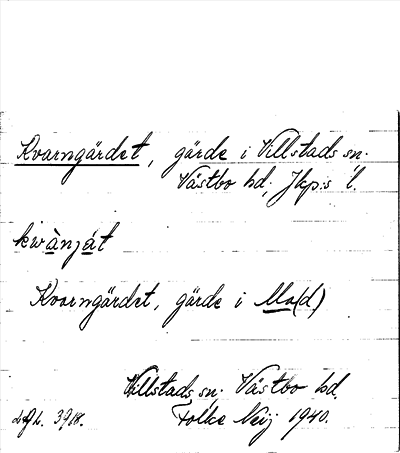 Kvarngärdet, gärde i Villstads sn.
Västbo hd, Jkp:s l.
kwànját
Kvarngärdet, gärde i Mo(d)
Villstads sn, Västbo hd.
3918. Folke Neij 1940.